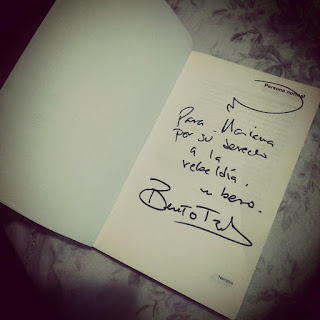 Persona normal
Para Mariana
por su derecho
a la
rebeldía.
un beso.
Benito T